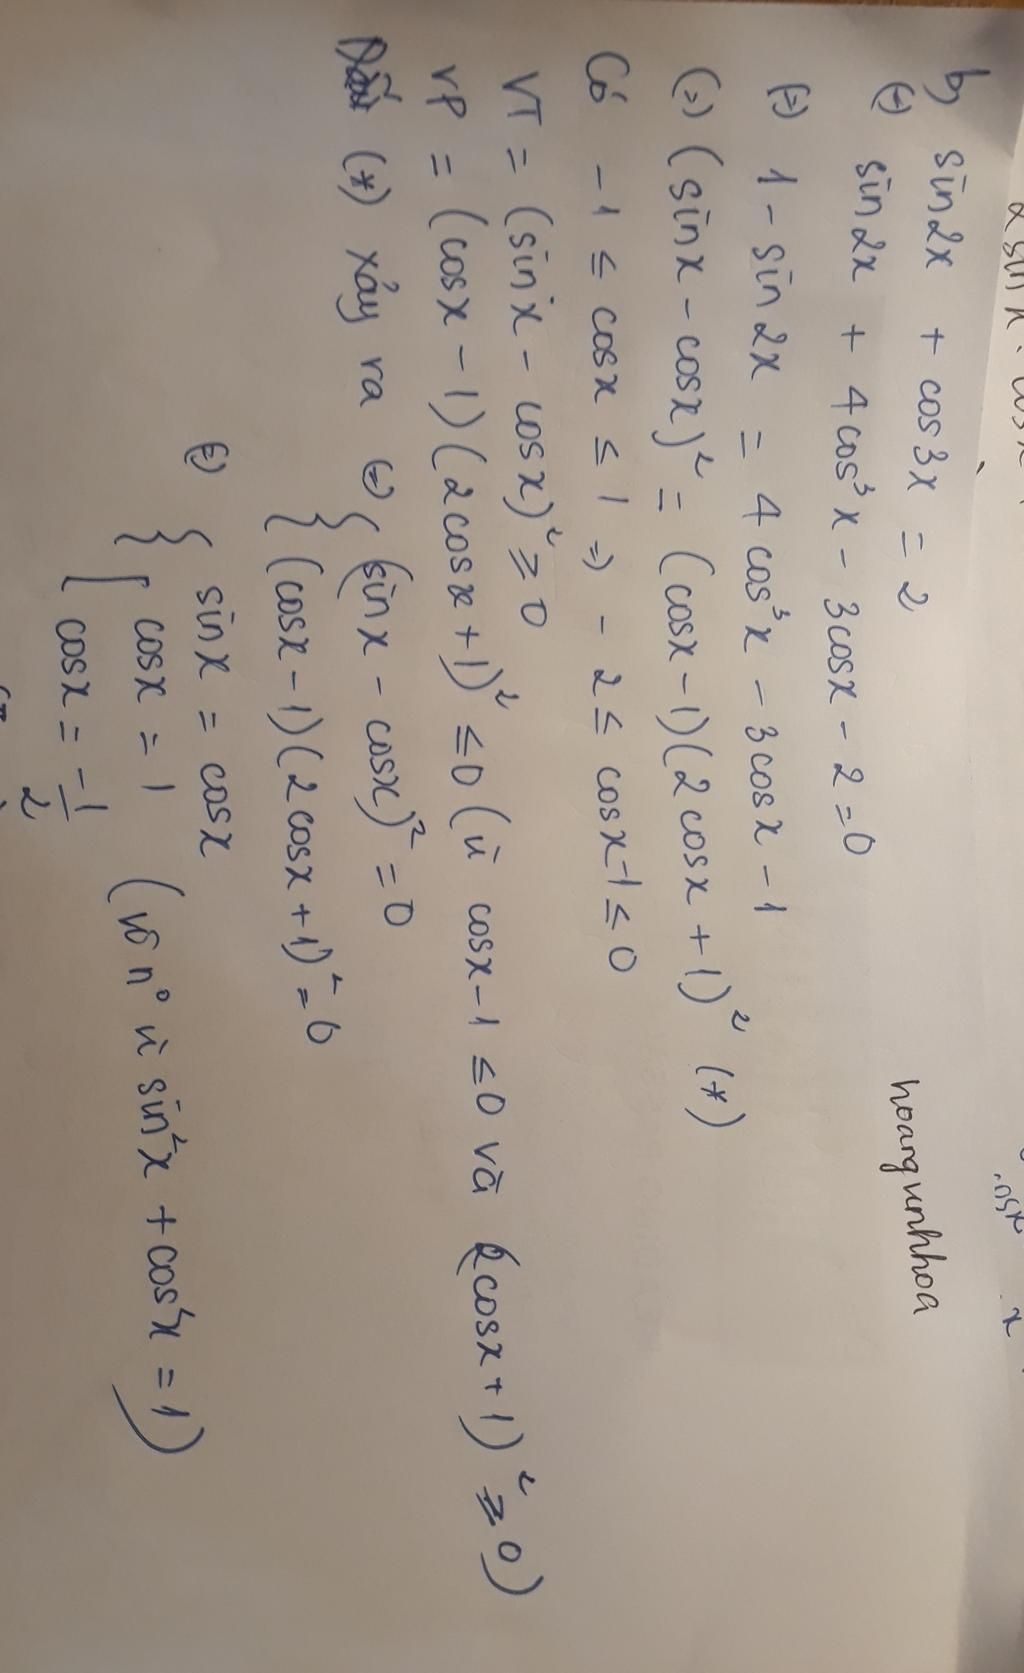 2 sin x . cos x
cosx x
b) sin2x + cos3x = 2
hoangvinhhoa
(=) sin2x + 4cos³x - 3cosx - 2 = 0
(=) 1 - sin2x = 4cos³x - 3cosx - 1
(=) (sinx - cosx)² = (cosx - 1)(2cosx + 1)² (*)
Có -1 ≤ cosx ≤ 1 => -2 ≤ cosx-1 ≤ 0
VT = (sinx - cosx)² ≥ 0
VP = (cosx - 1)(2cosx + 1)² ≤ 0 (vì cosx-1 ≤ 0 và (2cosx + 1)² ≥ 0)
Dấu (*) xảy ra (=) { (sinx - cosx)² = 0
(cosx - 1)(2cosx + 1)² = 0
(=) { sinx = cosx
[ cosx = 1 (vô n° vì sin²x + cos²x = 1)
cosx = -1/2